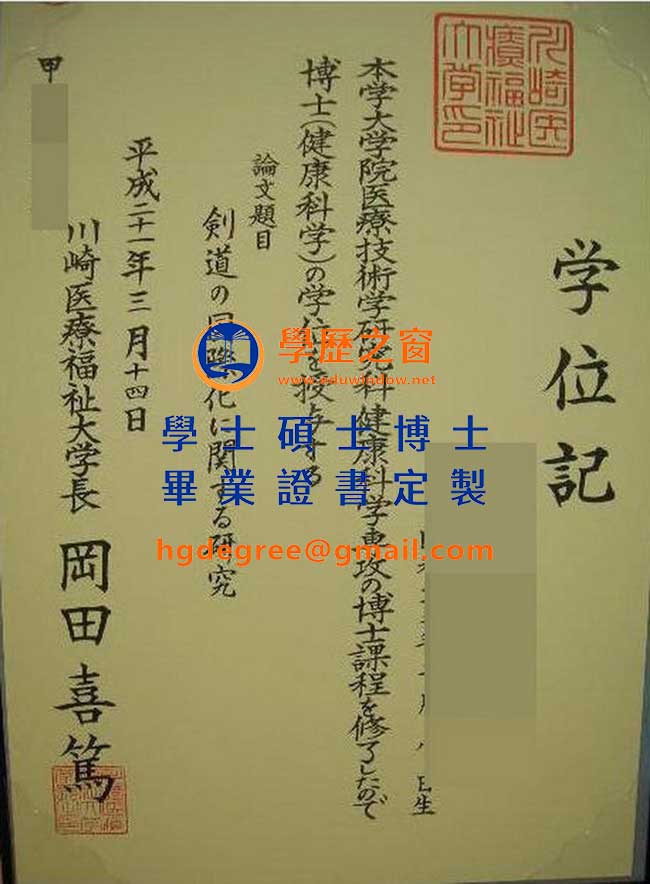 川崎医
療福祉
大学印
学位記
生
本学大学院医療技術学研究科健康科学専攻の博士課程を修了したので
博士(健康科学)の学位を授与する
論文題目
剣道の国際化に関する研究
平成二十一年三月十四日
川崎医療福祉大学長 岡田喜篤
甲
學歷之窗
www.eduwindow.net
學士碩士博士
畢業證書定製
hgdegree@gmail.com